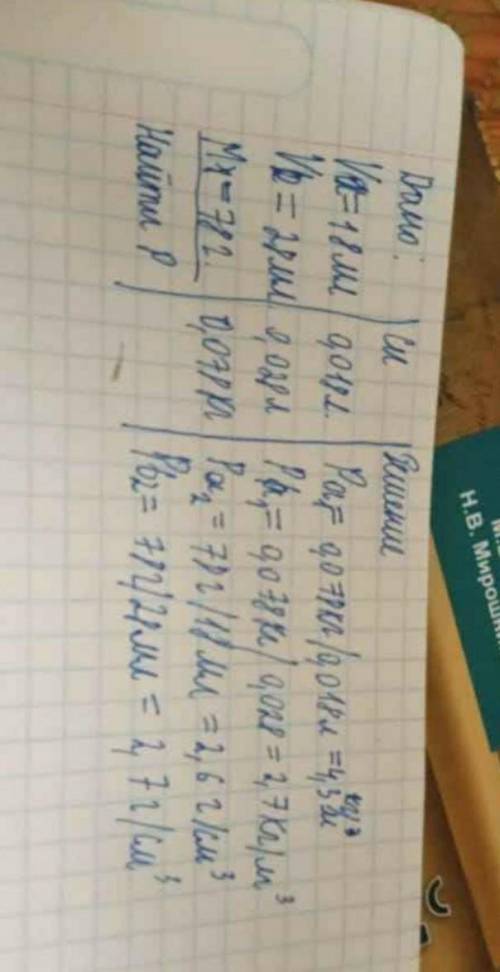 Дано:
Vа = 18 мл
Vв = 28 мл
Mх = 78 г.
Найти ρ
Си
0,018 л.
0,028 л
0,078 кг
Решение
ρа₁ = 0,078 кг/0,018 л = 4,3 кг/м³
ρв₁ = 0,078 кг/0,028 = 2,7 кг/м³
ρа₂ = 78 г/18 мл = 2,6 г/см³
ρв₂ = 78 г/28 мл = 2,7 г/см³
Н.В. Мирошн